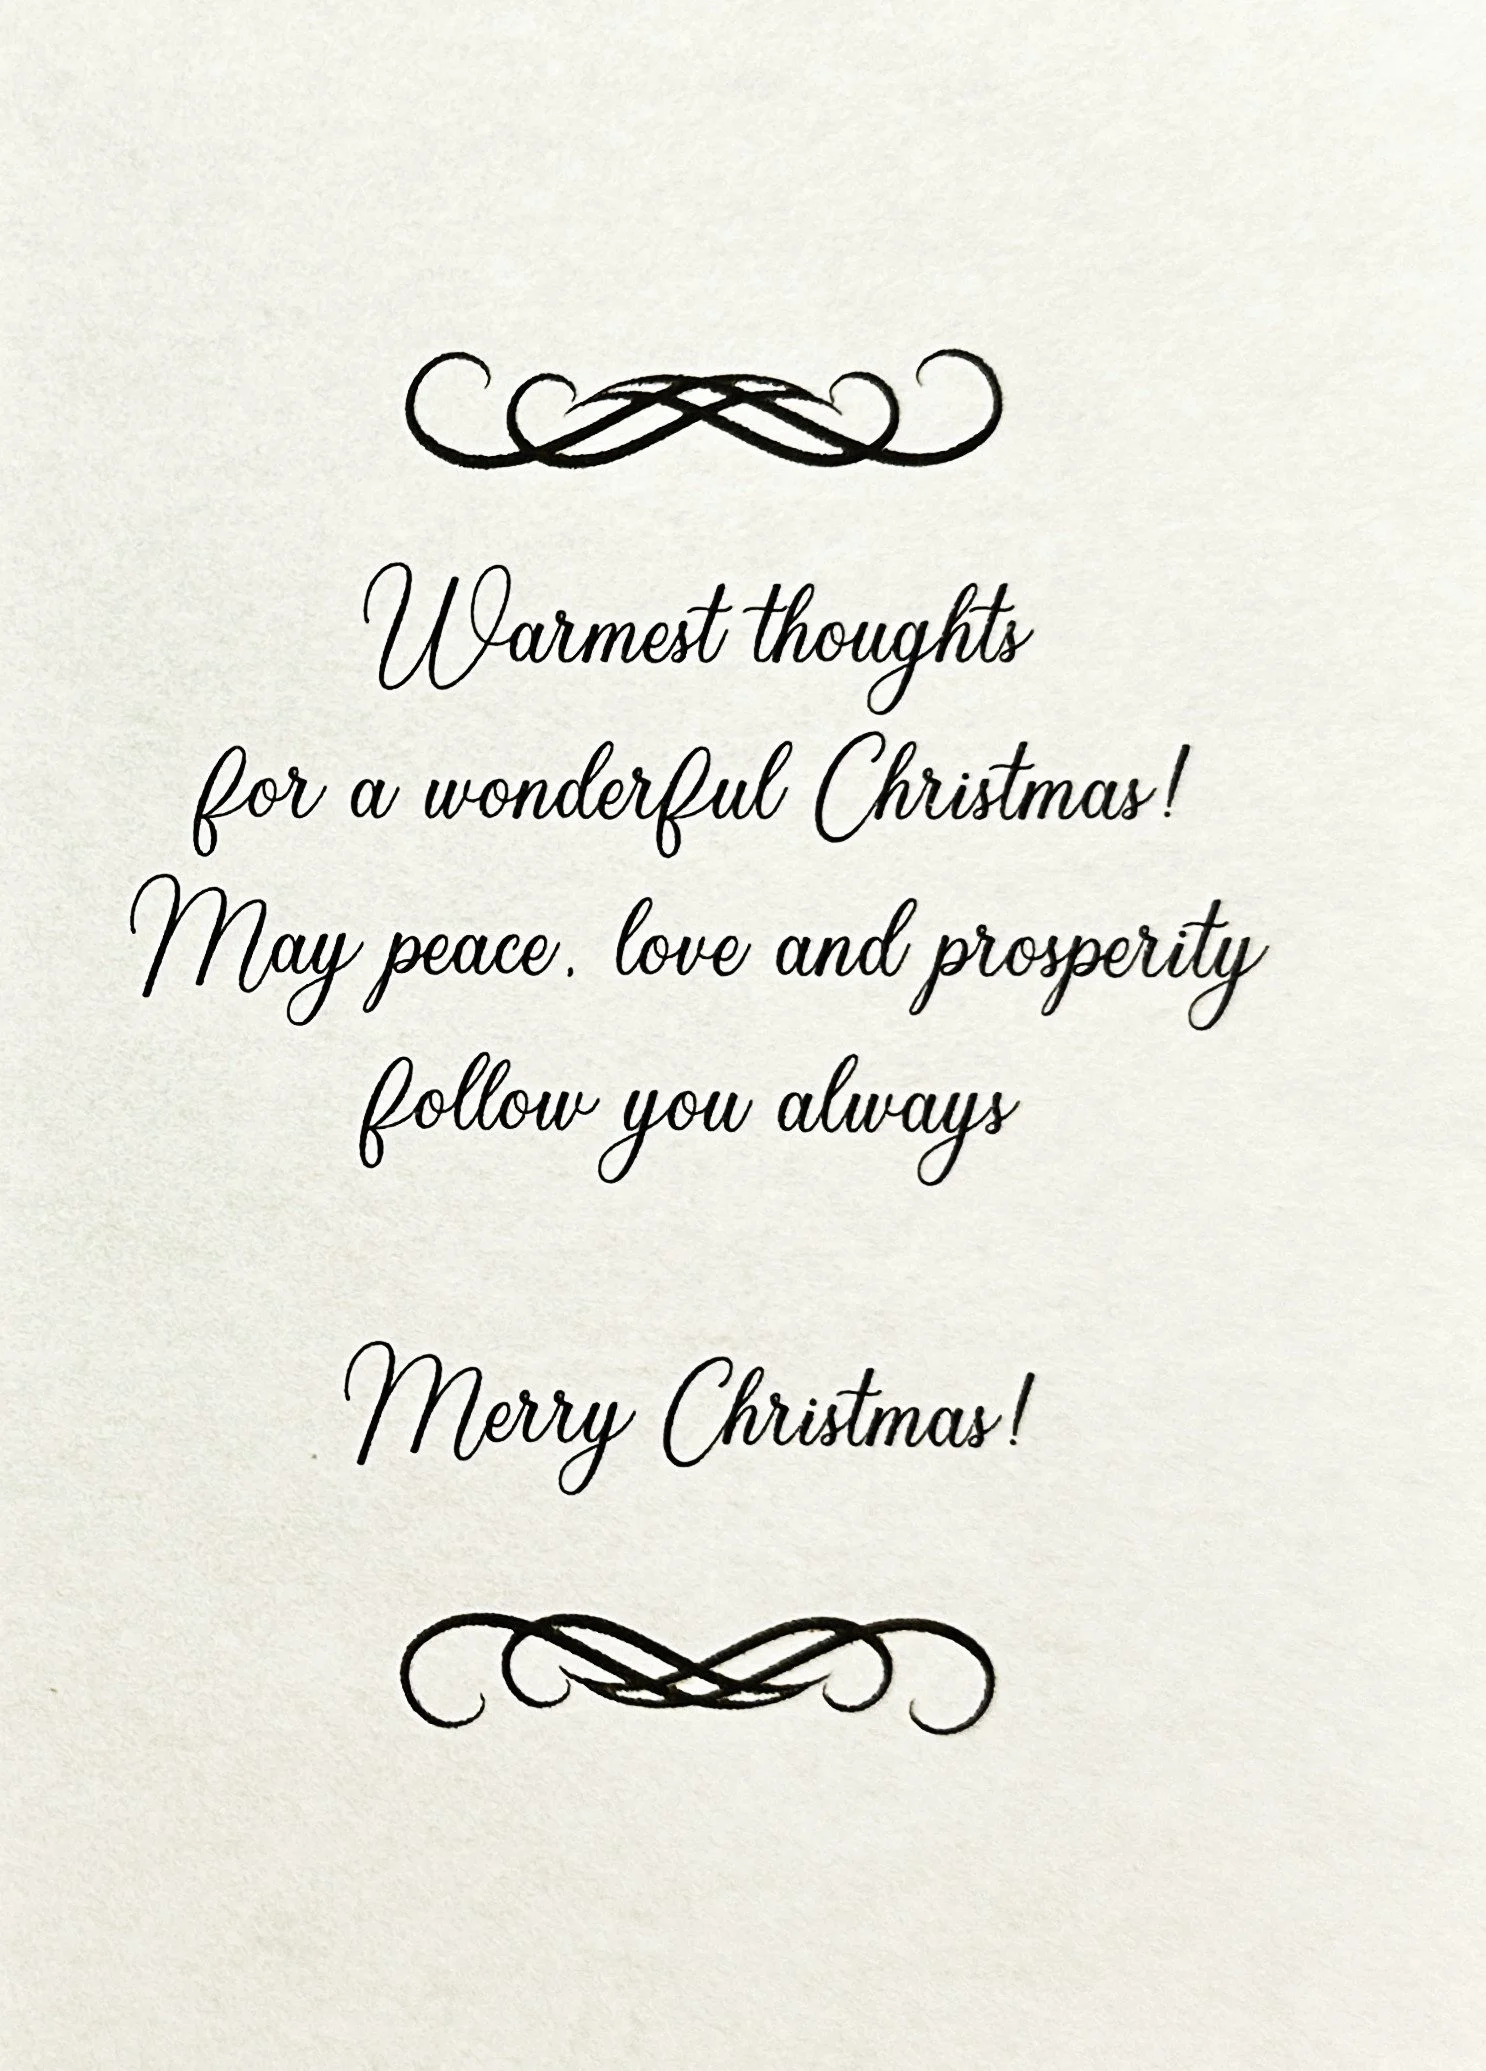 Warmest thoughts
for a wonderful Christmas!
May peace, love and prosperity
follow you always
Merry Christmas!